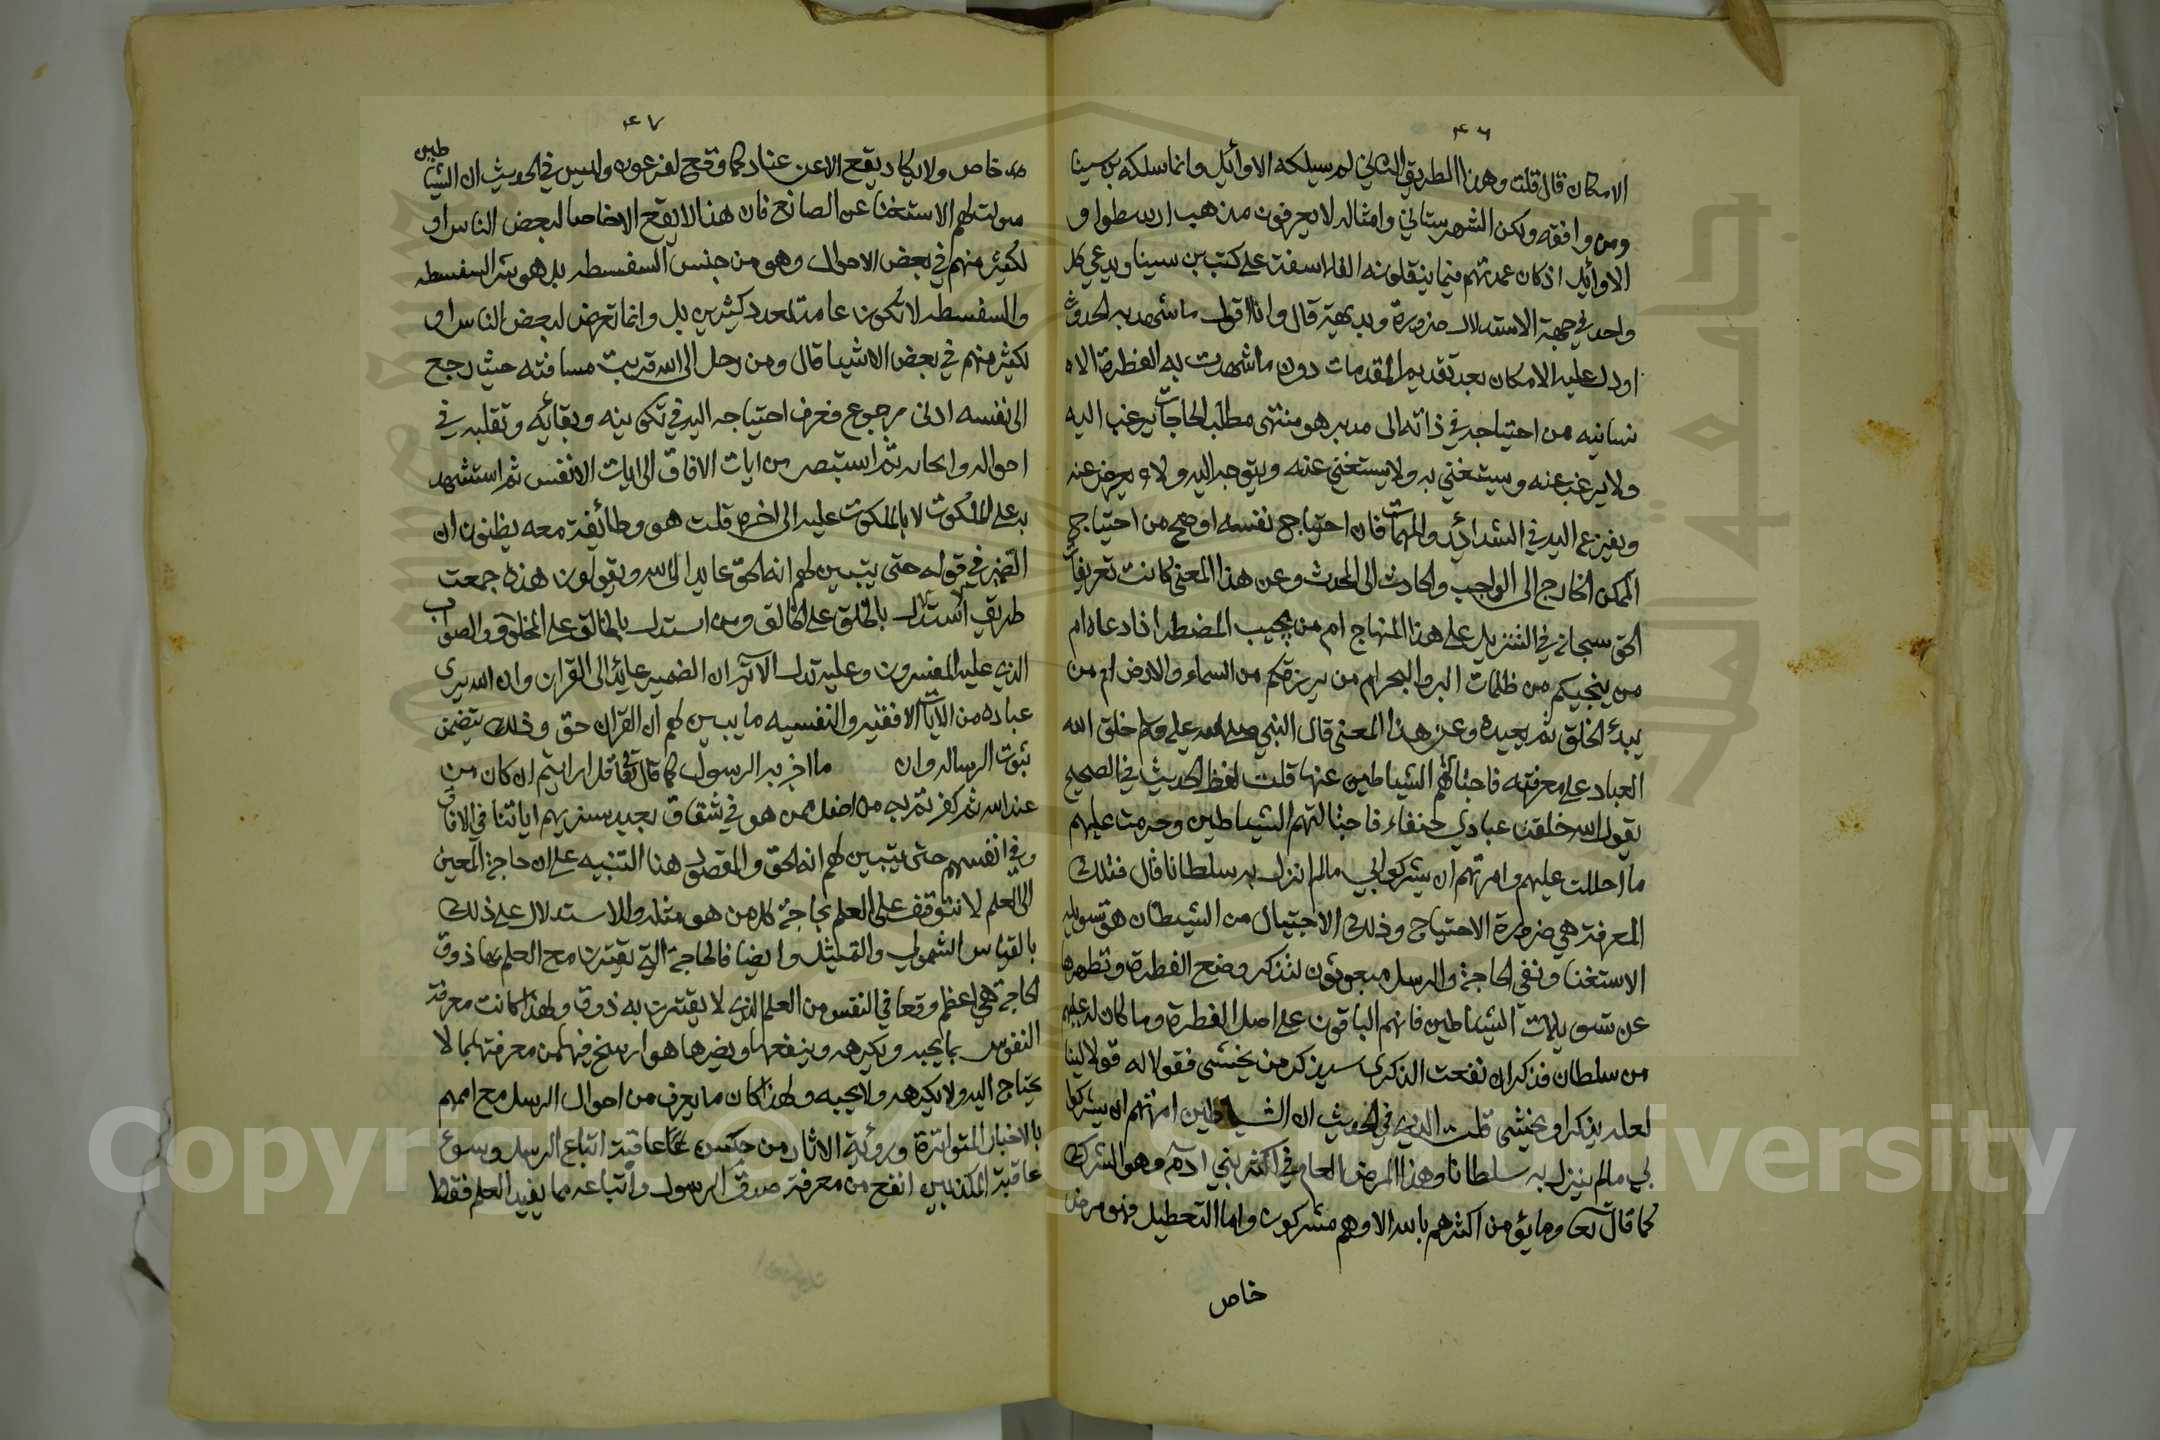 ٤٦
الامكان قال قلت وهذا الطريق الثاني لم سيلكه الاوأيل وانما سلكه بن سينا
ومن وافقه ولكن الشهرستاني وامثاله لا يعرفون مذهب ارسطوا و
الاوأيل اذ كان عمدتهم فيما ينقلونه الفلاسفة على كتب بن سينا ويدعي كل
واحد في جهة الاستدلال ضرورة وبديهة قال وانا اقول ما شهد به الحدوث
اودل عليه الامكان بعد تقديم المقدمات دون ما شهدت به الفطرة الا
نسانيه من احتياجه في ذاته الى مدبر هو منتهى مطلب الحاجات يرغب اليه
ولا يرغب عنه وسيتغني به ولا يستغني عنه ويتوجه اليه ولا يعرض عنه
ويفزع اليه في الشدأيد والمهمات فان احتياج نفسه اوضح من احتياج
الممكن الخارج الى الواجب والحادث الى المحدث وعن هذا المعنى كانت تعريفات
الحق سبحانه في التنزيل على هذا المنهاج ام من يجيب المضطر اذا دعاه ام
من ينجيكم من ظلمات البر والبحر ام من يرزقكم من السماء والارض ام من
يبدء الخلق ثم يعيده وعن هذا المعنى قال النبي صلى الله عليه وسلم خلق الله
العباد على معرفته فاجتالهم الشياطين عنها قلت لفظ الحديث في الصحيح
يقول الله خلقت عبادي حنفاء فاجتالتهم الشياطين وحرمت عليهم
ما احللت عليهم وامرتهم ان يشركوا بي مالم انزل به سلطانا قال فتلك
المعرفة هي ضرورة الاحتياج وذلك الاجتيال من الشيطان هو تسويله
الاستغنا ونفي الحاجة والرسل مبعوثون لتذكر وضع الفطرة وتطهرها
عن تسويلات الشياطين فانهم الباقون على اصل الفطرة وما كان له عليهم
من سلطان فذكر ان نفعت الذكرى سيذكر من يخشى فقولا له قولا لينا
لعله يذكر او يخشى قلت الذي في الحديث ان الشياطين امرتهم ان يشركوا
بي مالم ينزل به سلطانا وهذا المرض العام في اكثر بني ادم وهو الشرك
كما قال تعا وما يؤمن اكثرهم بالله الا وهم مشركون واما التعطيل فهو مرض
خاص
٤٧
خاص ولا يكاد يقع الا عن عناد كما وقع لفرعون وليس في الحديث ان الشياطين
سولت لهم الاستغنا عن الصانع فان هذا لا يقع الا خاصا لبعض الناس او
لكثير منهم في بعض الاحوال وهو من جنس السفسطه بل هو شر السفسطه
والسفسطه لا تكون عامة لعدد كثيرين بل وانما تعرض لبعض الناس او
لكثير منهم في بعض الاشيا قال ومن رحل الى الله قربت مسافته حيث رجع
الى نفسه ادنى رجوع فعرف احتياجه اليه في تكوينه وبقأيه وتقلبه في
احواله وانحائه ثم استبصر من ايات الافاق الى ايات الانفس ثم استشهد
به على الملكوت لا بالملكوت عليه الى اخره قلت هو وطأيفة معه يظنون ان
الضمير في قوله حتى يتبين لهم انه الحق عايد الى الله ويقولون هذه جمعت
طريق استدل بالخلق على الخالق ومن استدل بالخالق على المخلوق والصواب
الذي عليه المفسرون وعليه تدل الآية ان الضمير عايد الى القران وان الله يرى
عباده من الايات الافقيه والنفسيه ما يبين لهم ان القران حق وذلك يتضمن
ثبوت الرساله وان ما اخبر به الرسول كما قال تعا قل ارايتم ان كان من
عند الله ثم كفرتم به من اضل ممن هو في شقاق بعيد سنريهم اياتنا في الافاق
وفي انفسهم حتى يتبين لهم انه الحق والمقصود هنا التنبيه على ان حاجة المعين
الى العلم لا تتوقف على العلم بحاجة كل من هو مثله والاستدلال على ذلك
بالقياس الشمولي والتمثيل وايضا فالحاجة التي يقترن مع العلم بها ذوق
الحاجة هي اعظم وقعا في النفس من العلم الذي لا يقترن به ذوق ولهذا كانت معرفة
النفوس بما يحبه ويكرهه وينفعها ويضرها هو ارسخ فيها من معرفتها بما لا
يحتاج اليه ولا يكرهه ولا يحبه ولهذا كان ما يعرف من احوال الرسل مع اممهم
بالاخبار المتواترة ورؤية الاثار من حسن عاقبة اتباع الرسل وسوء
عاقبة المكذبين انفع من معرفة صدق الرسول واتباعه مما يفيد العلم فقط
Copyright © King Saud University
جامعة الملك سعود